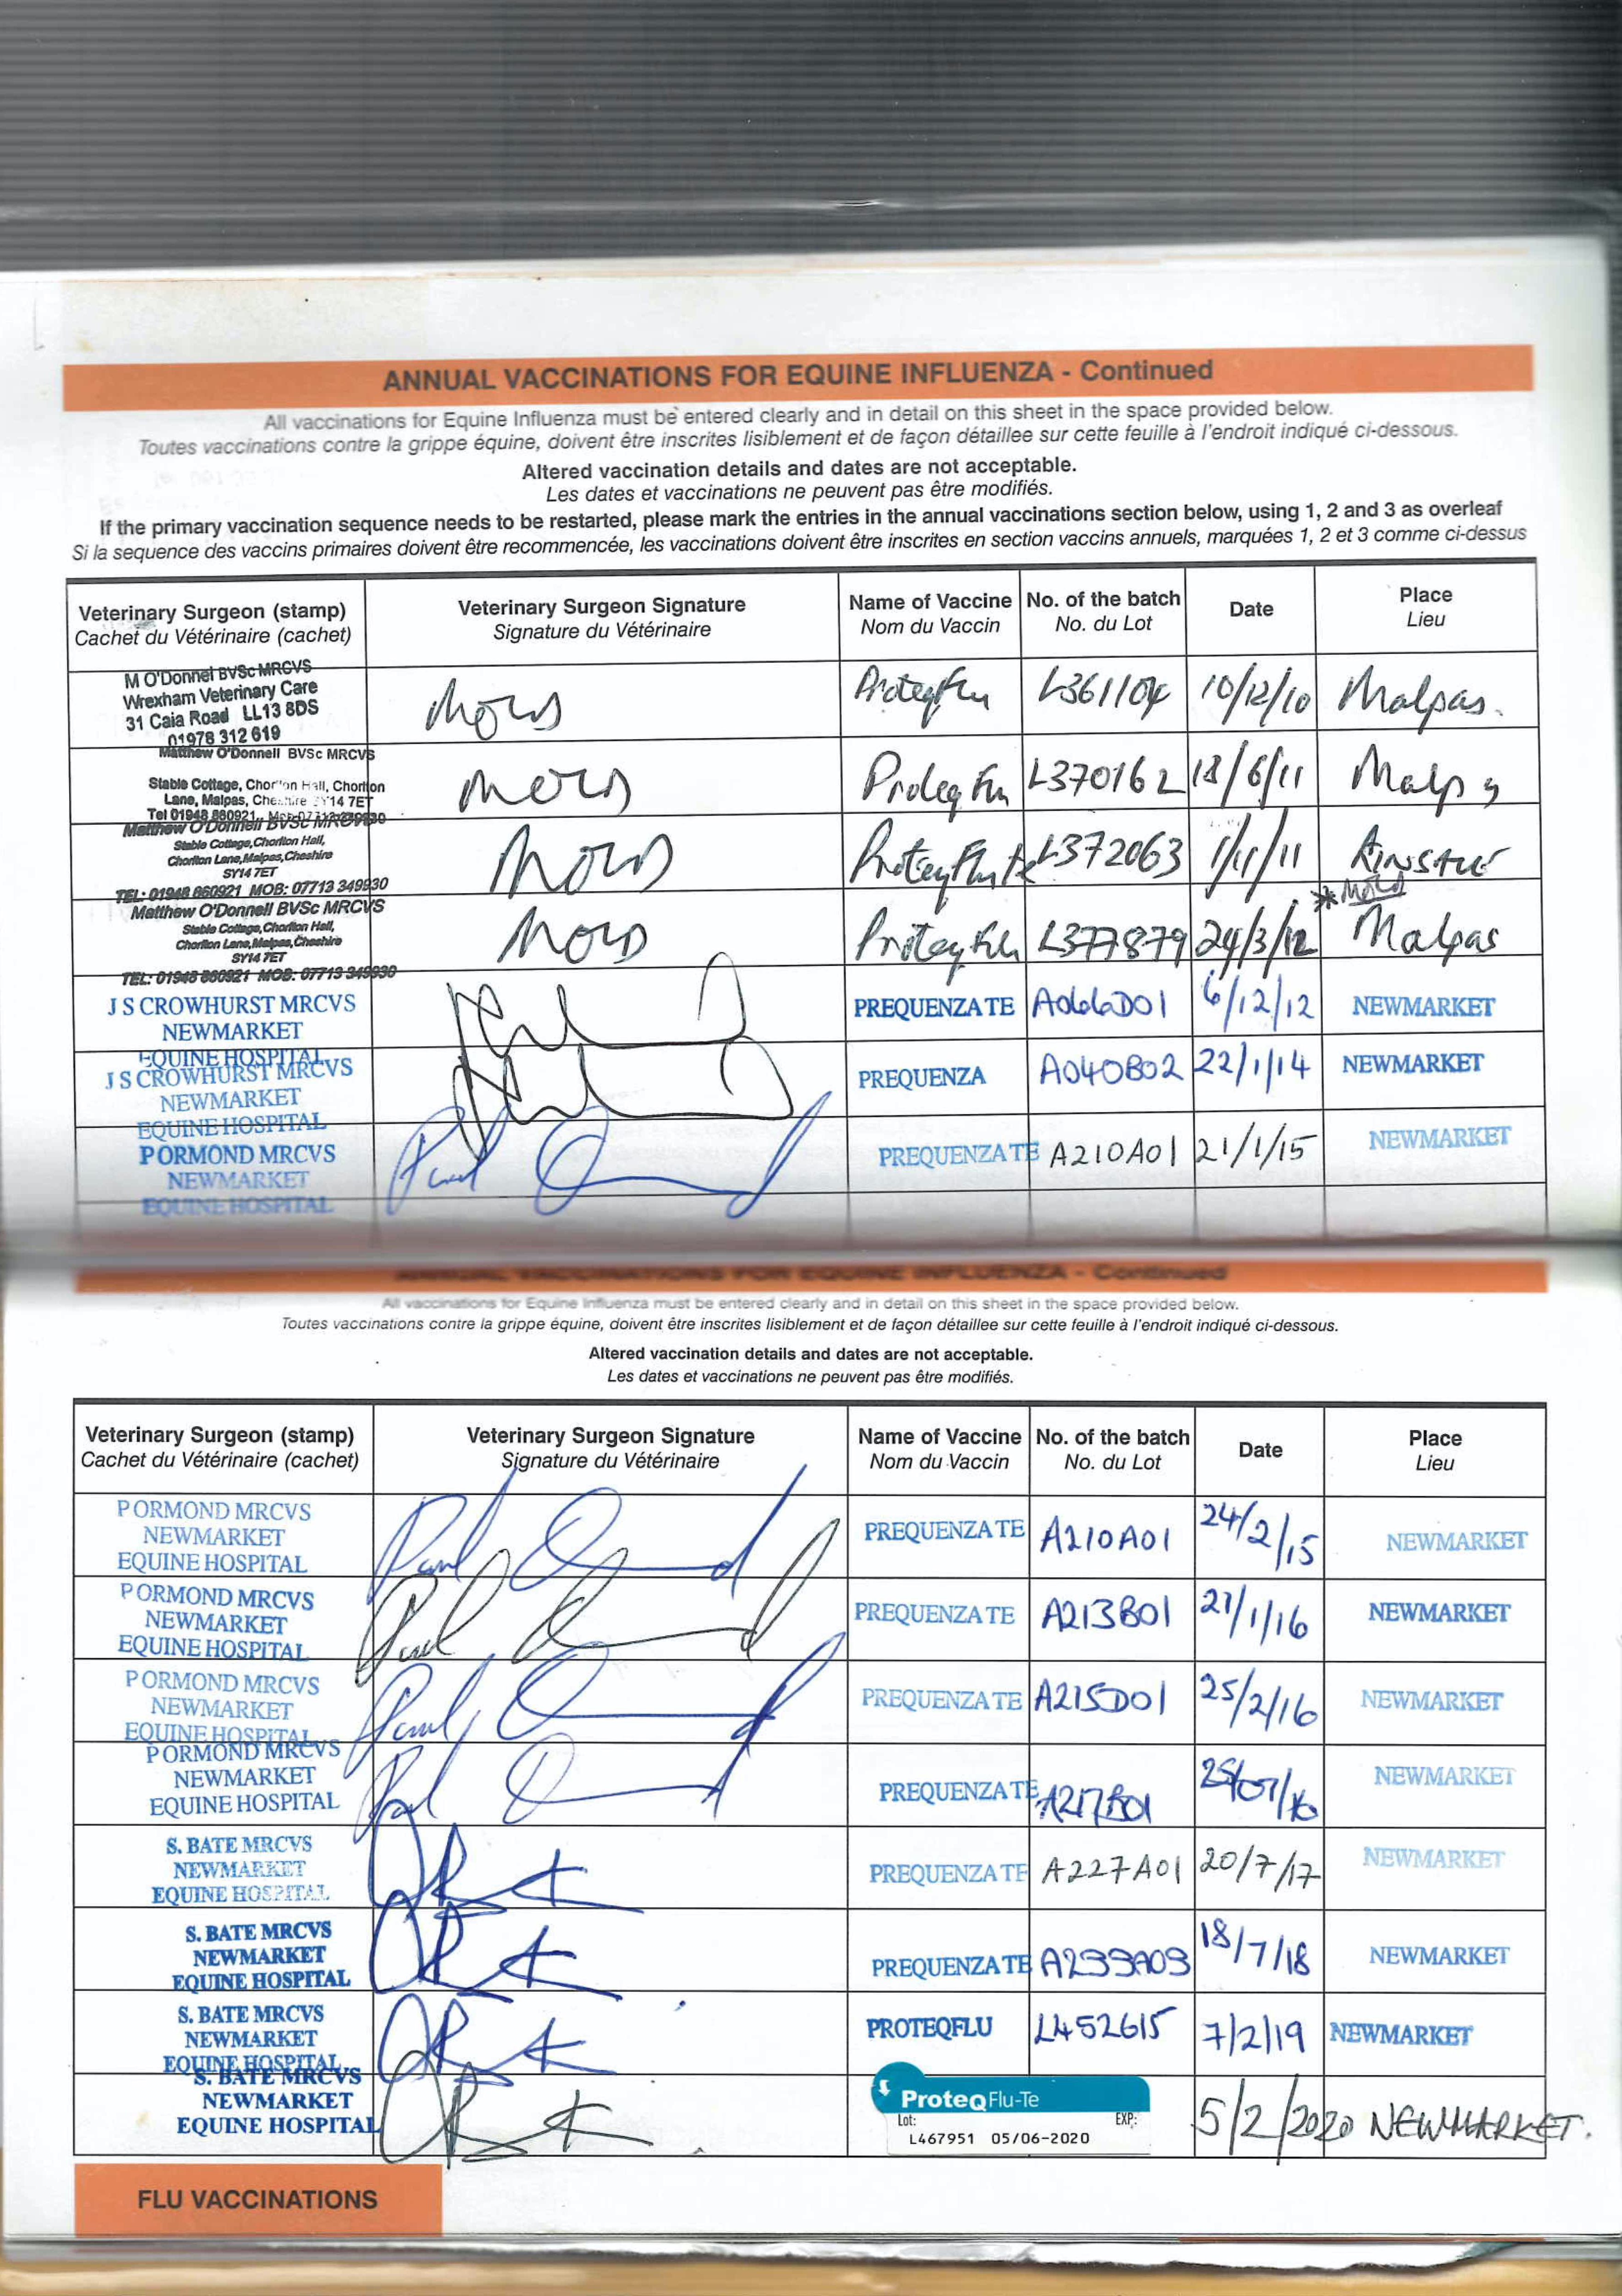 ANNUAL VACCINATIONS FOR EQUINE INFLUENZA - Continued
All vaccinations for Equine Influenza must be entered clearly and in detail on this sheet in the space provided below.
Toutes vaccinations contre la grippe équine, doivent être inscrites lisiblement et de façon détaillee sur cette feuille à l'endroit indiqué ci-dessous.
Altered vaccination details and dates are not acceptable.
Les dates et vaccinations ne peuvent pas être modifiés.
If the primary vaccination sequence needs to be restarted, please mark the entries in the annual vaccinations section below, using 1, 2 and 3 as overleaf
Si la sequence des vaccins primaires doivent être recommencée, les vaccinations doivent être inscrites en section vaccins annuels, marquées 1, 2 et 3 comme ci-dessus
Veterinary Surgeon (stamp) Veterinary Surgeon Signature Name of Vaccine No. of the batch Date Place
Cachet du Vétérinaire (cachet) Signature du Vétérinaire Nom du Vaccin No. du Lot Lieu
M O'Donnel BVSc MRCVS
Wrexham Veterinary Care
31 Caia Road LL13 8DS
01978 312 619
ProteqFlu L361104 10/12/10 Malpas.
Matthew O'Donnell BVSc MRCVS
Stable Cottage, Chorlton Hall, Chorlton
Lane, Malpas, Cheshire SY14 7ET
Tel 01948 860921
ProteqFlu L370162 18/6/11 Malpas
Matthew O'Donnell BVSc MRCVS
Stable Cottage, Chorlton Hall,
Chorlton Lane, Malpas, Cheshire
SY14 7ET
TEL: 01948 860921 MOB: 07713 349930
ProteqFlu te L372063 1/11/11
Matthew O'Donnell BVSc MRCVS
Stable Cottage, Chorlton Hall,
Chorlton Lane, Malpas, Cheshire
SY14 7ET
TEL: 01948 860921 MOB: 07713 349930
ProteqFlu L377879 24/3/12 Malpas
J S CROWHURST MRCVS
NEWMARKET
EQUINE HOSPITAL
PREQUENZA TE A066D01 6/12/12 NEWMARKET
J S CROWHURST MRCVS
NEWMARKET
EQUINE HOSPITAL
PREQUENZA A040B02 22/1/14 NEWMARKET
P ORMOND MRCVS
NEWMARKET
EQUINE HOSPITAL
PREQUENZA TE A210A01 21/1/15 NEWMARKET
ANNUAL VACCINATIONS FOR EQUINE INFLUENZA - Continued
All vaccinations for Equine Influenza must be entered clearly and in detail on this sheet in the space provided below.
Toutes vaccinations contre la grippe équine, doivent être inscrites lisiblement et de façon détaillee sur cette feuille à l'endroit indiqué ci-dessous.
Altered vaccination details and dates are not acceptable.
Les dates et vaccinations ne peuvent pas être modifiés.
Veterinary Surgeon (stamp) Veterinary Surgeon Signature Name of Vaccine No. of the batch Date Place
Cachet du Vétérinaire (cachet) Signature du Vétérinaire Nom du Vaccin No. du Lot Lieu
P ORMOND MRCVS
NEWMARKET
EQUINE HOSPITAL
PREQUENZA TE A210A01 24/2/15 NEWMARKET
P ORMOND MRCVS
NEWMARKET
EQUINE HOSPITAL
PREQUENZA TE A213B01 21/1/16 NEWMARKET
P ORMOND MRCVS
NEWMARKET
EQUINE HOSPITAL
PREQUENZA TE A215D01 25/2/16 NEWMARKET
P ORMOND MRCVS
NEWMARKET
EQUINE HOSPITAL
PREQUENZA TE A217B01 25/07/16 NEWMARKET
S. BATE MRCVS
NEWMARKET
EQUINE HOSPITAL
PREQUENZA TE A227A01 20/7/17 NEWMARKET
S. BATE MRCVS
NEWMARKET
EQUINE HOSPITAL
PREQUENZA TE A233A03 18/7/18 NEWMARKET
S. BATE MRCVS
NEWMARKET
EQUINE HOSPITAL
PROTEQFLU L452615 7/2/19 NEWMARKET
S. BATE MRCVS
NEWMARKET
EQUINE HOSPITAL
ProteqFlu-Te
Lot: EXP:
L467951 05/06-2020
5/2/2020 NEWMARKET.
FLU VACCINATIONS